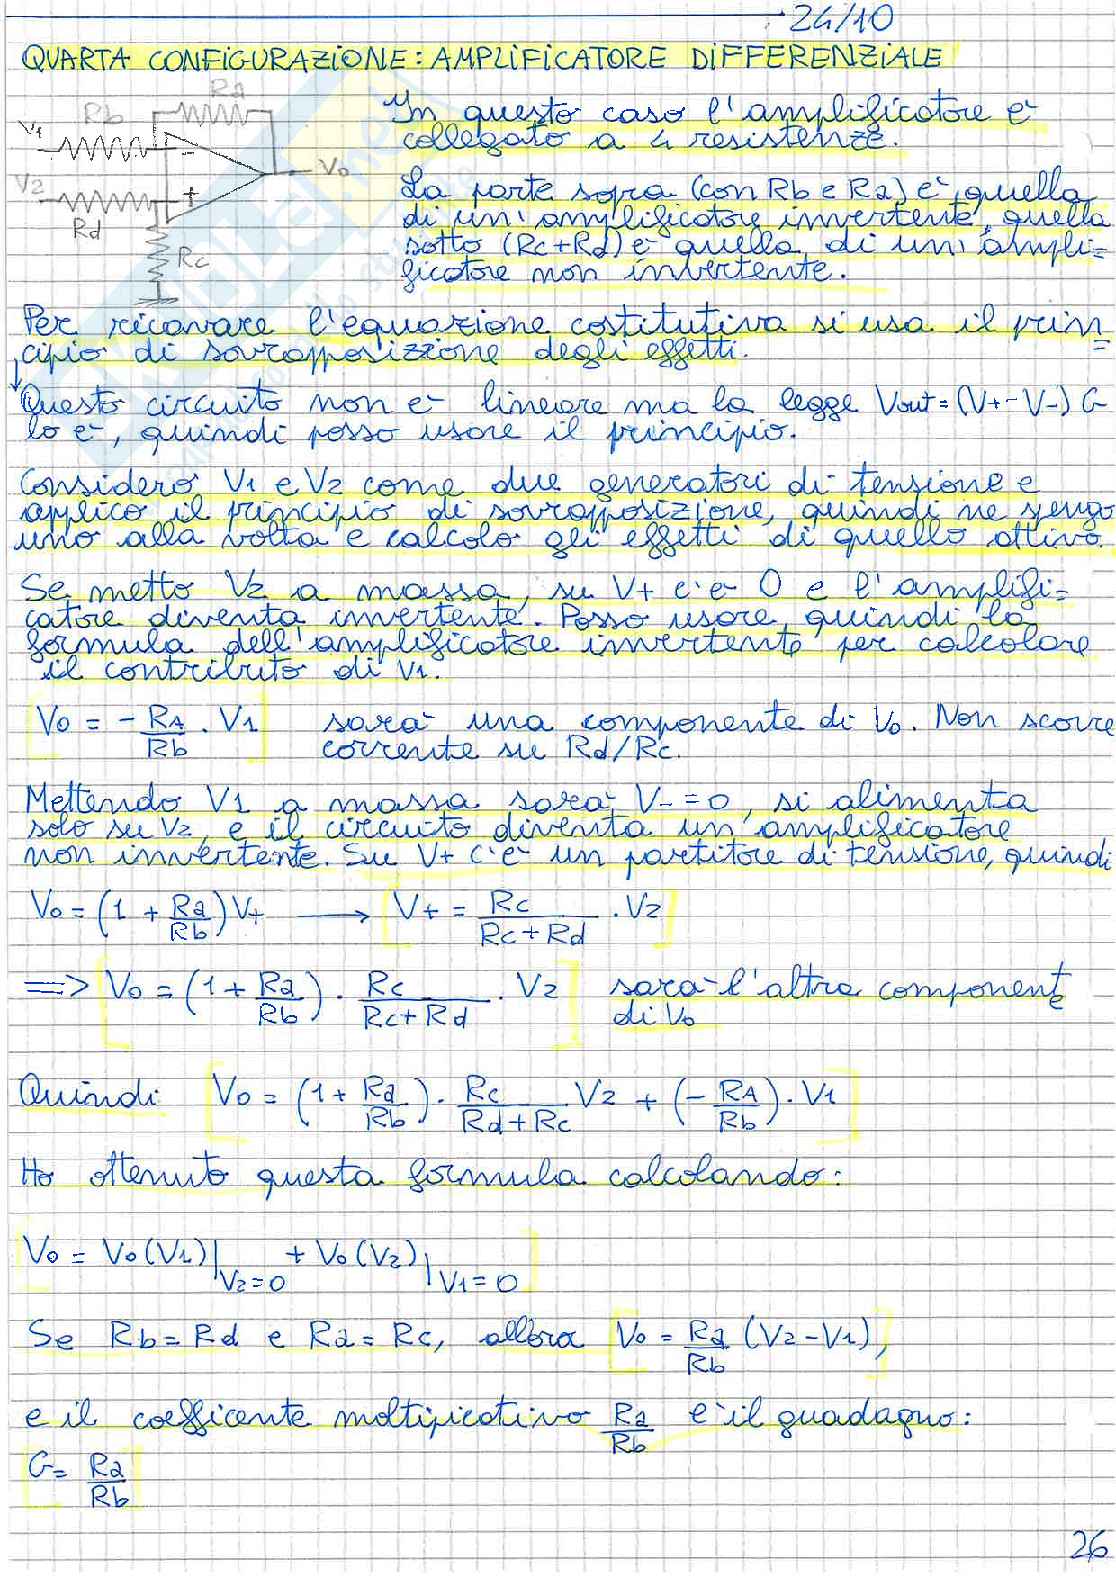 24/10
QUARTA CONFIGURAZIONE: AMPLIFICATORE DIFFERENZIALE
Ra
Rb
V1
V2
Vo
Rd
Rc
In questo caso l'amplificatore è
collegato a 4 resistenze.
La parte sopra (con Rb e Ra) è quella
di un'amplificatore invertente, quella
sotto (Rc+Rd) è quella di un'ampli=
ficatore non invertente.
Per ricavare l'equazione costitutiva si usa il prin=
cipio di sovrapposizzione degli effetti.
Questo circuito non è lineare ma la legge Vout = (V+ - V-) G
lo è, quindi posso usare il principio.
Considero V1 e V2 come due generatori di tensione e
applico il principio di sovrapposizione, quindi ne spengo
uno alla volta e calcolo gli effetti di quello attivo.
Se metto V2 a massa, su V+ c'è 0 e l'amplifi=
catore diventa invertente. Posso usare quindi la
formula dell'amplificatore invertente per calcolare
il contributo di V1.
Vo = - RA/Rb . V1 sarà una componente di Vo. Non scorre
corrente su Rd/Rc.
Mettendo V1 a massa sarà V- = 0, si alimenta
solo su V2, e il circuito diventa un'amplificatore
non invertente. Su V+ c'è un partitore di tensione, quindi
Vo = (1 + Ra/Rb) V+ → V+ = Rc/(Rc + Rd) . V2
=> Vo = (1 + Ra/Rb) . Rc/(Rc + Rd) . V2 sarà l'altra componente
di Vo
Quindi Vo = (1 + Ra/Rb) . Rc/(Rd + Rc) V2 + (- RA/Rb) . V1
Ho ottenuto questa formula calcolando:
Vo = Vo (V1)|V2=0 + Vo (V2)|V1=0
Se Rb = Rd e Ra = Rc, allora Vo = Ra/Rb (V2 - V1),
e il coefficente moltipicativo Ra/Rb è il guadagno:
G = Ra/Rb
26